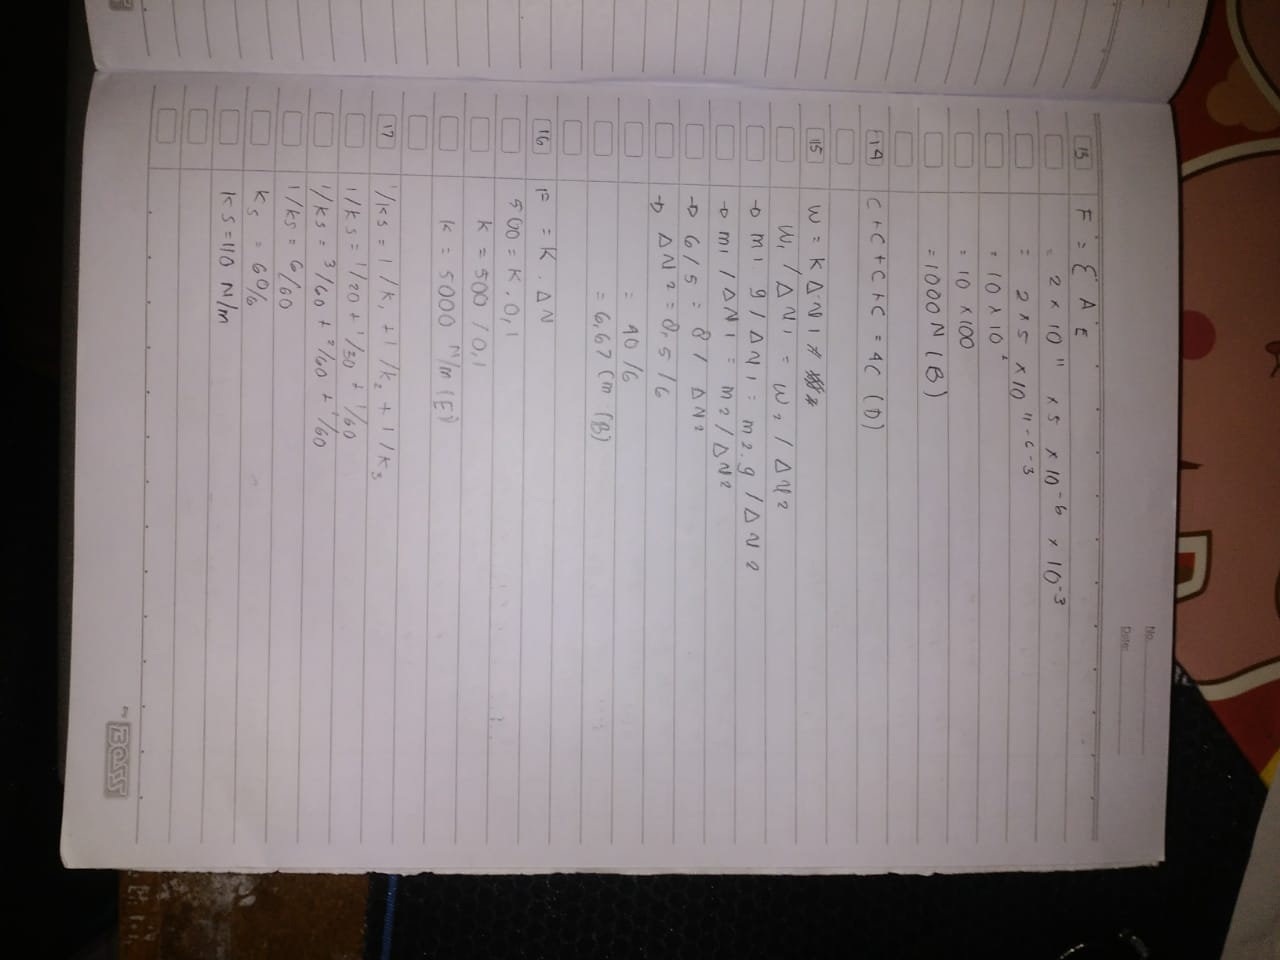 No.
Date:
13 F = E A E
= 2 x 10 11 x 5 x 10 -6 x 10 -3
= 2 x 5 x 10 11-6-3
= 10 x 10 2
= 10 x 100
= 1000 N (B)
14 C + C + C + C = 4C (D)
15 W = K ΔN1
W1 / ΔN1 = W2 / ΔN2
→ m1. g / ΔN1 = m2. g / ΔN2
→ m1 / ΔN1 = m2 / ΔN2
→ 6 / 5 = 8 / ΔN2
→ ΔN2 = 8,5 / 6
= 40 / 6
= 6,67 Cm (B)
16 F = K . ΔN
500 = K . 0,1
K = 500 / 0,1
K = 5000 N/m (E)
17 1/ks = 1 / k1 + 1 / k2 + 1 / k3
1/ks = 1/20 + 1/30 + 1/60
1/ks = 3/60 + 2/60 + 1/60
1/ks = 6/60
ks = 60/6
ks = 110 N/m
BOSS